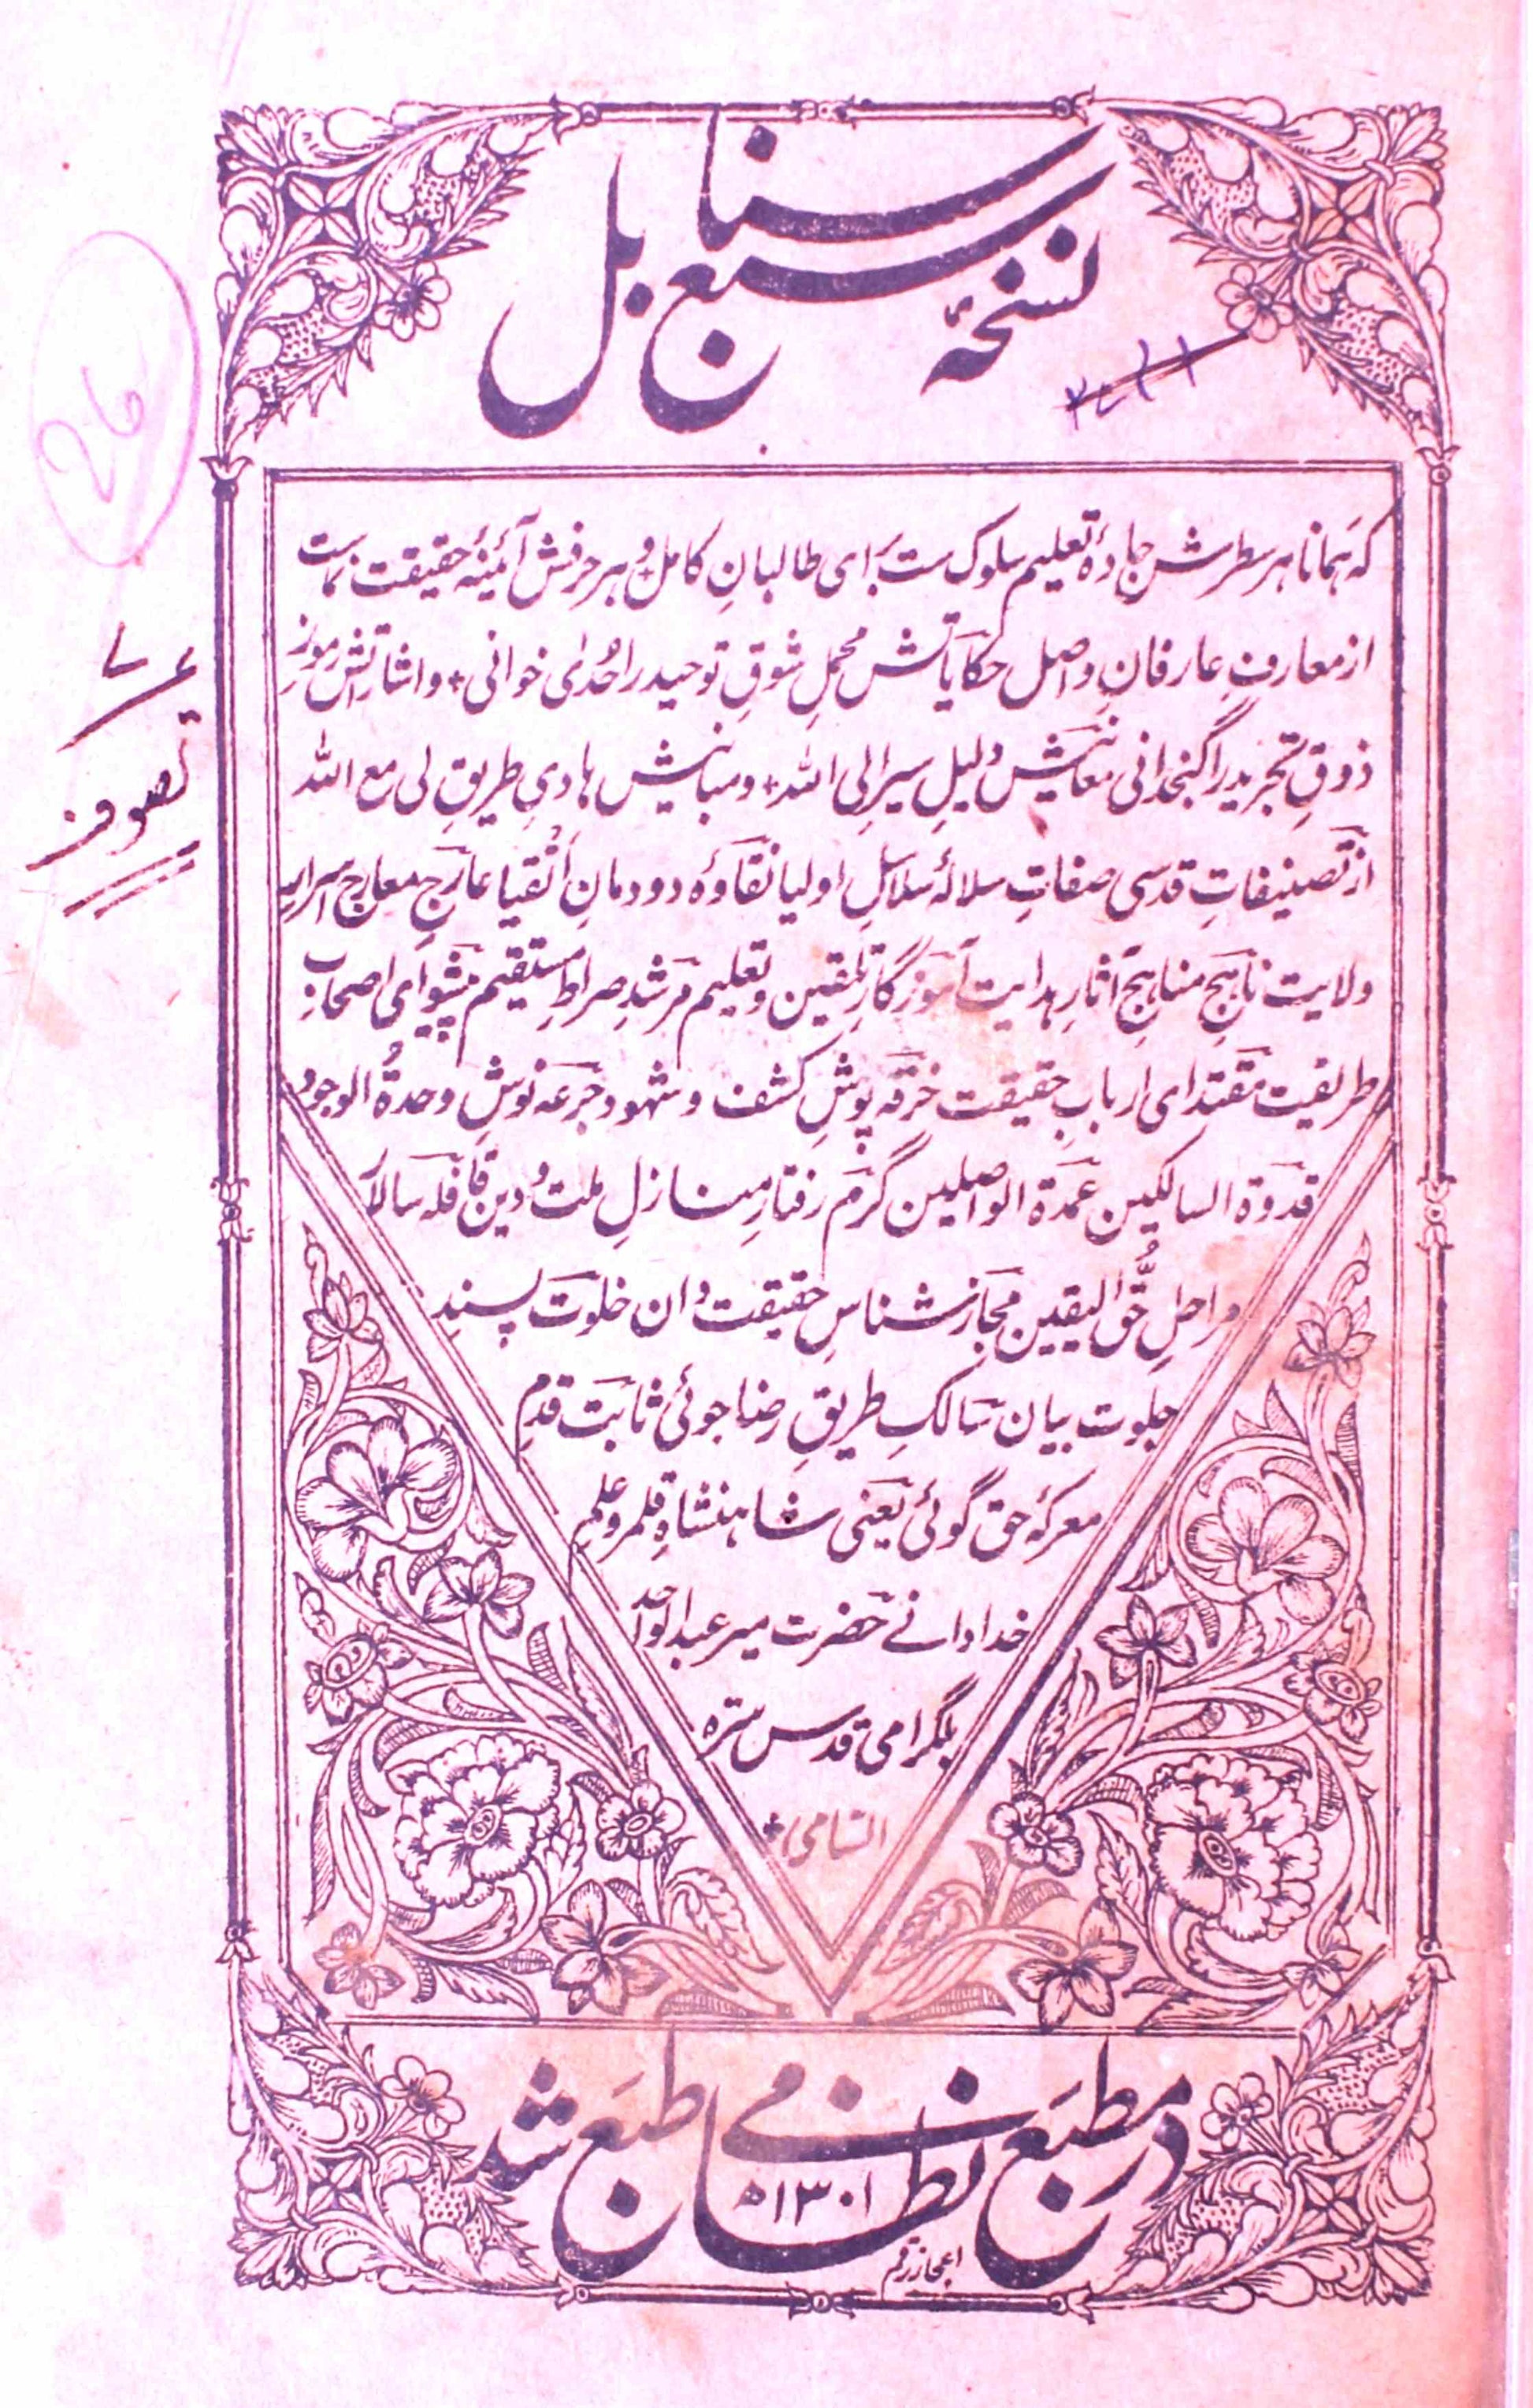 نسخۂ سبع سنابل
که همانا هر سطرش جادۀ تعلیم سلوک ست برای طالبانِ کامل و هر حرفش آئینۂ حقیقت نماست
از معارفِ عارفانِ واصل حکایاتش محملِ شوقِ توحید را حُدیٰ خوانی و اشاراتش رموز
ذوقِ تجرید را گنجدانی معانیش دلیلِ سیر الی الله و مبانیش هادیِ طریقِ لی مع الله
از تصنیفاتِ قدسی صفاتِ سلالۂ سلاسلِ اولیا نقاوۂ دودمانِ اَتقیا عارجِ معارجِ اسرارِ
ولایت ناهجِ مناهجِ آثارِ هدایت آموزگارِ تلقین و تعلیم مرشدِ صراطِ مستقیم پیشوای اصحابِ
طریقت مقتدای اربابِ حقیقت خرقه پوشِ کشف و شهود جرعه نوشِ وحدةُ الوجود
قدوة السالکین عمدة الواصلین گرم رفتارِ منازلِ ملت و دین قافله سالار
مراحلِ حَقُّ الیقین مجاز شناسِ حقیقت دان خلوت پسندِ
جلوت بیان سالکِ طریقِ رضا جوئی ثابت قدمِ
معرکۂ حق گوئی یعنی شاهنشاهِ قلمرو علم
خدادانے حضرت میر عبد الواحد
بلگرامی قدس سره
السّامی
در مطبع نظامے طبع شد
۱۳۰۱ھ
اعجاز رقم
26
تصوف